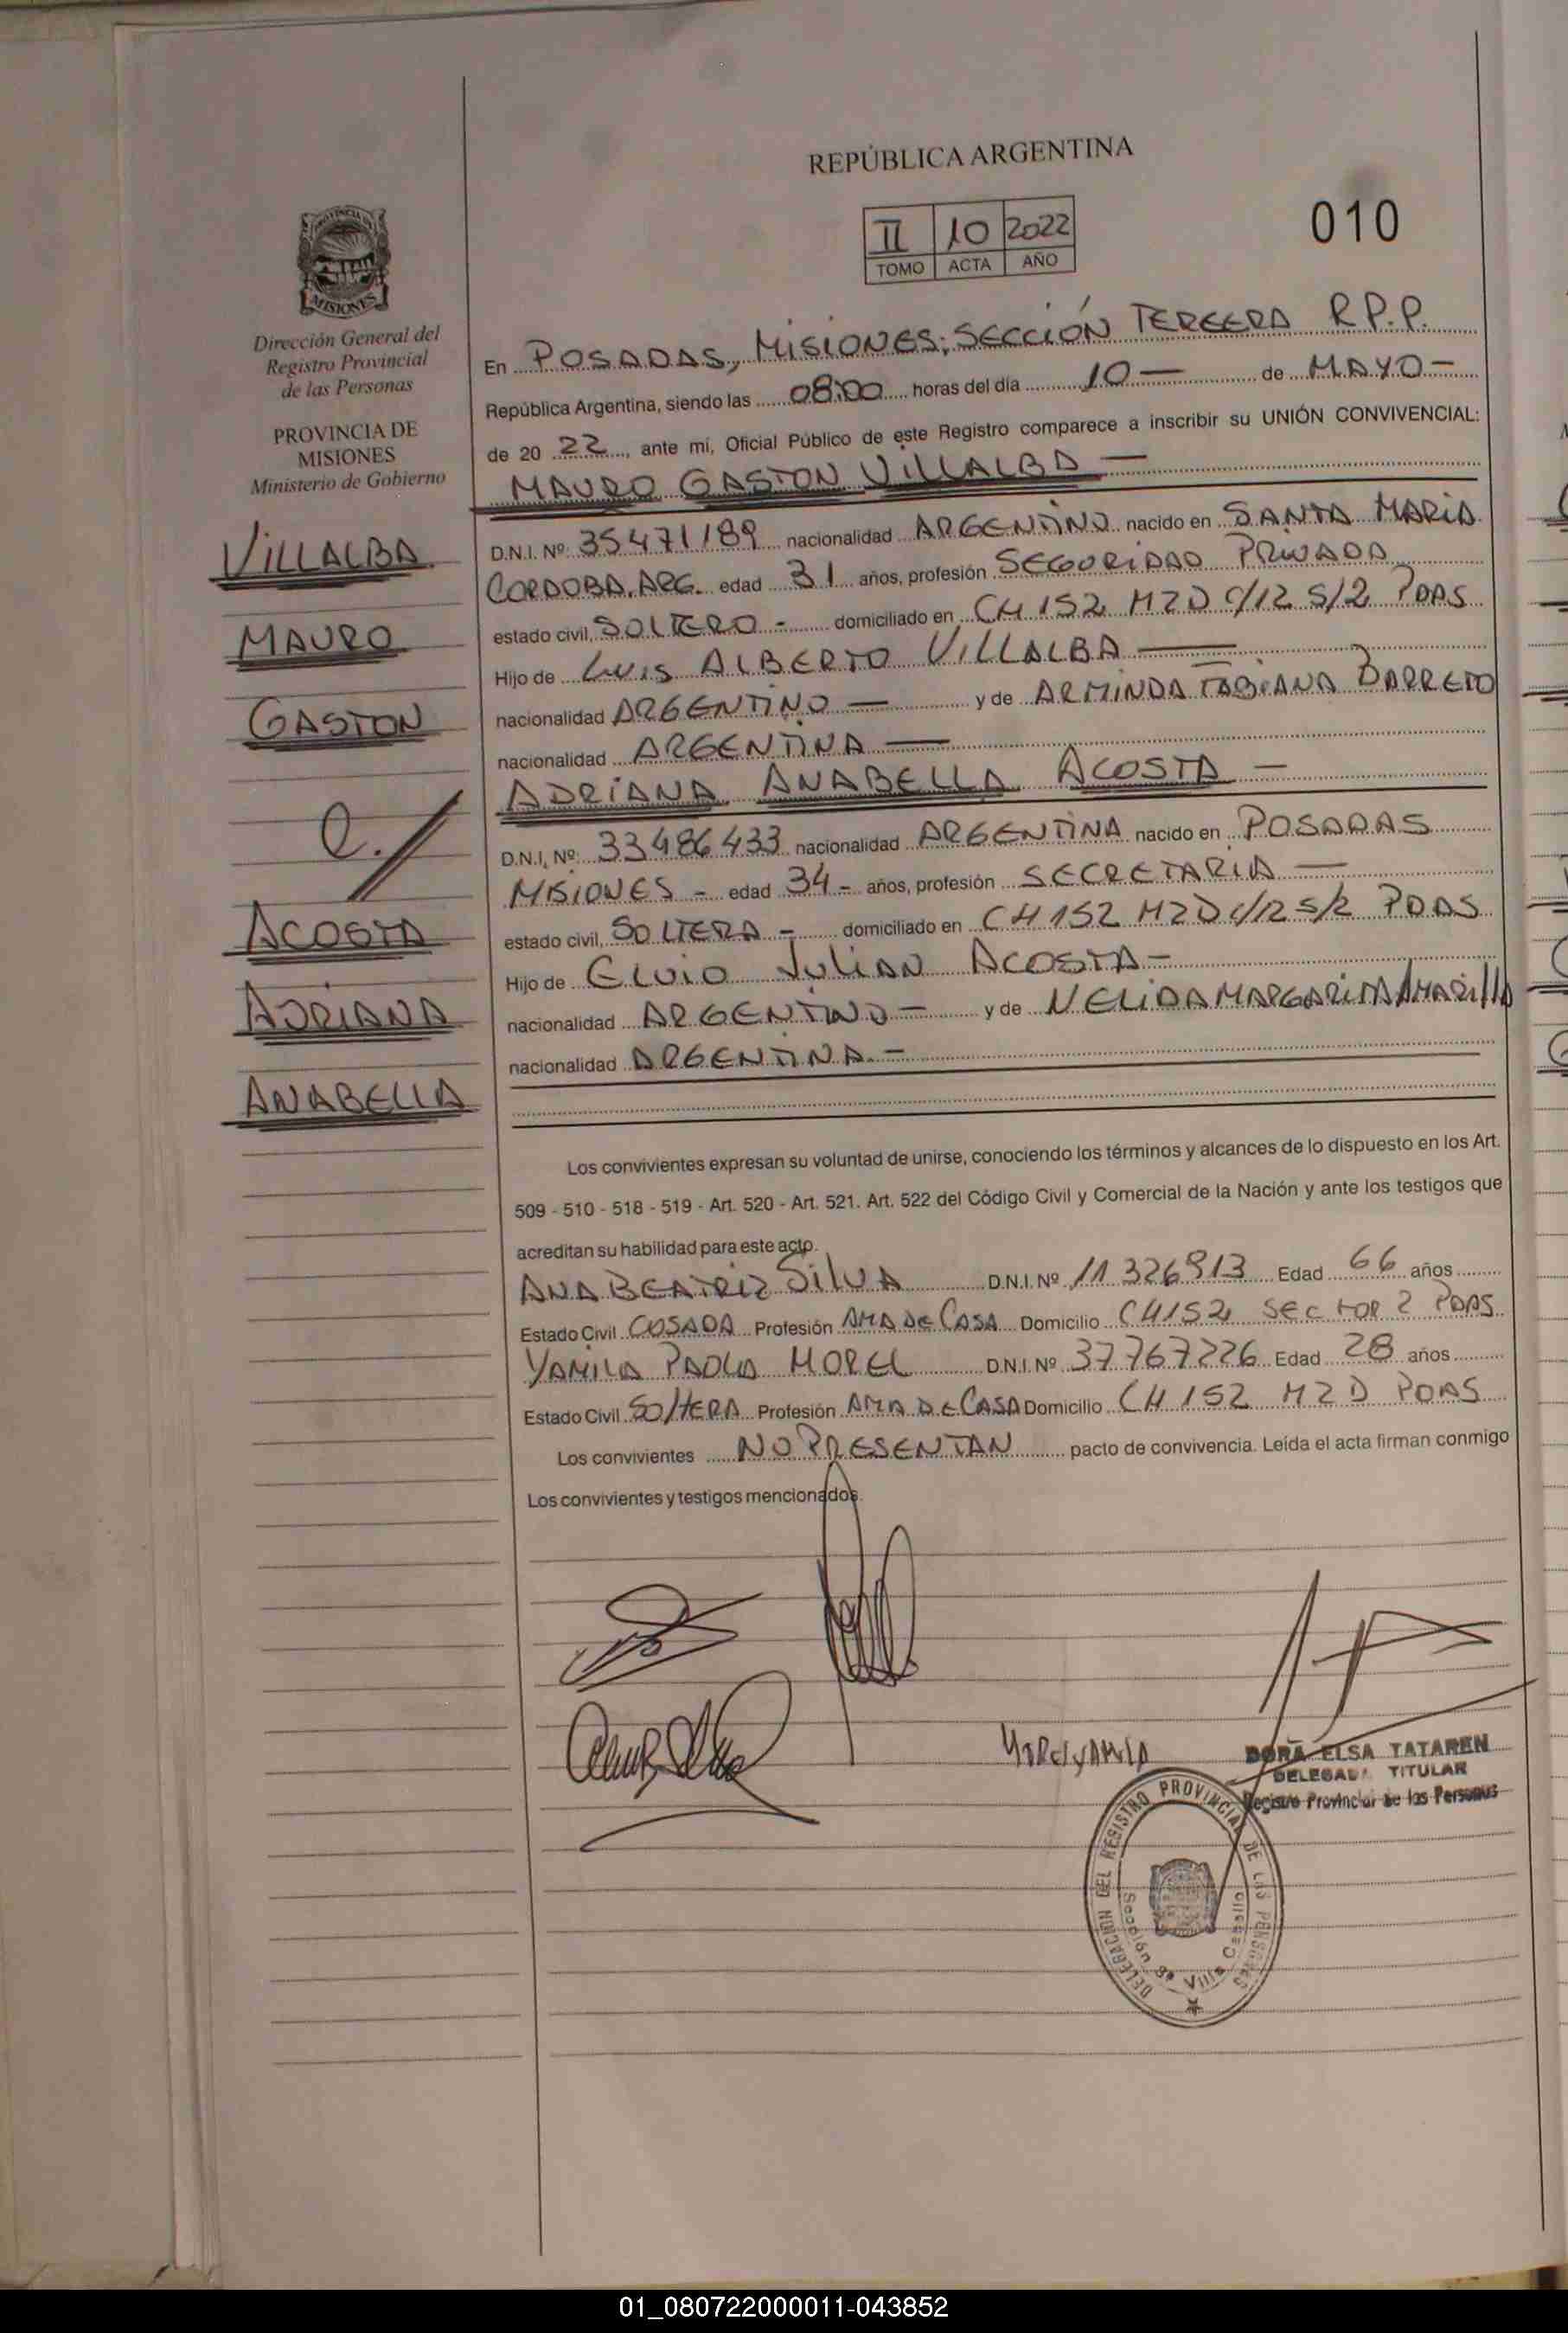 REPÚBLICA ARGENTINA
II 10 2022
TOMO ACTA AÑO
010
MISIONES
Dirección General del
Registro Provincial
de las Personas
PROVINCIA DE
MISIONES
Ministerio de Gobierno
VILLALBA
MAURO
GASTON
C./
ACOSTA
ADRIANA
ANABELLA
En POSADAS, MISIONES; SECCIÓN TERCERA R.P.P.
República Argentina, siendo las 08:00 horas del día 10 — de MAYO —
de 20 22, ante mí, Oficial Público de este Registro comparece a inscribir su UNIÓN CONVIVENCIAL:
MAURO GASTON VILLALBA —
D.N.I. Nº: 35471189 nacionalidad ARGENTINO nacido en SANTA MARIA
CORDOBA. ARG. edad 31 años, profesión SEGURIDAD PRIVADA
estado civil, SOLTERO - domiciliado en CH 152 MZ D C/12 S/2 PDAS
Hijo de LUIS ALBERTO VILLALBA —
nacionalidad ARGENTINO — y de ARMINDA FABIANA BARRETO
nacionalidad ARGENTINA —
ADRIANA ANABELLA ACOSTA —
D.N.I, Nº: 33486433 nacionalidad ARGENTINA nacido en POSADAS
MISIONES - edad 34 - años, profesión SECRETARIA —
estado civil, SOLTERA - domiciliado en CH 152 MZ D C/12 S/2 PDAS
Hijo de ELVIO JULIAN ACOSTA —
nacionalidad ARGENTINO — y de NELIDA MARGARITA AMARILLA
nacionalidad ARGENTINA. —
Los convivientes expresan su voluntad de unirse, conociendo los términos y alcances de lo dispuesto en los Art.
509 - 510 - 518 - 519 - Art. 520 - Art. 521. Art. 522 del Código Civil y Comercial de la Nación y ante los testigos que
acreditan su habilidad para este acto.
ANA BEATRIZ SILVA D.N.I. Nº 11326913 Edad 66 años
Estado Civil CASADA Profesión AMA DE CASA Domicilio CH152 SECTOR 2 PDAS
YAMILA PAOLA MOREL D.N.I. Nº 37767226 Edad 28 años
Estado Civil SOLTERA Profesión AMA DE CASA Domicilio CH 152 MZ D PDAS
Los convivientes NO PRESENTAN pacto de convivencia. Leída el acta firman conmigo
Los convivientes y testigos mencionados.
DORA ELSA TATAREN
DELEGADA TITULAR
Registro Provincial de las Personas
DELEGACION DEL REGISTRO PROVINCIAL DE LAS PERSONAS
Sección 3ª Villa Cabello
01_080722000011-043852